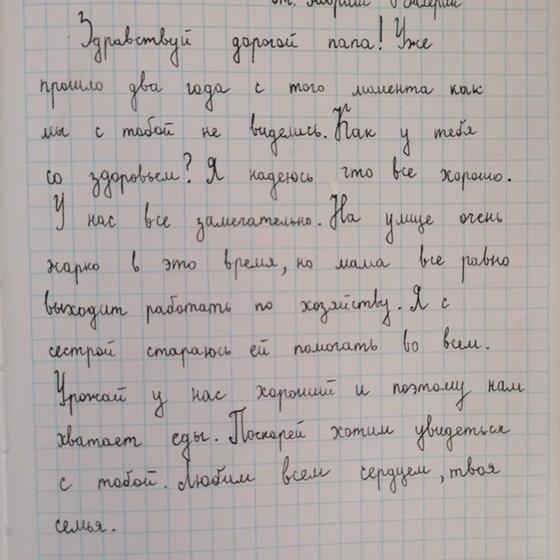 Здравствуй дорогой папа! Уже
прошло два года с того момента как
мы с тобой не виделись. Как у тебя
со здоровьем? Я надеюсь что все хорошо.
У нас все замечательно. На улице очень
жарко в это время, но мама все равно
выходит работать по хозяйству. Я с
сестрой стараюсь ей помогать во всем.
Урожай у нас хороший и поэтому нам
хватает еды. Поскорей хотим увидеться
с тобой. Любим всем сердцем, твоя
семья.